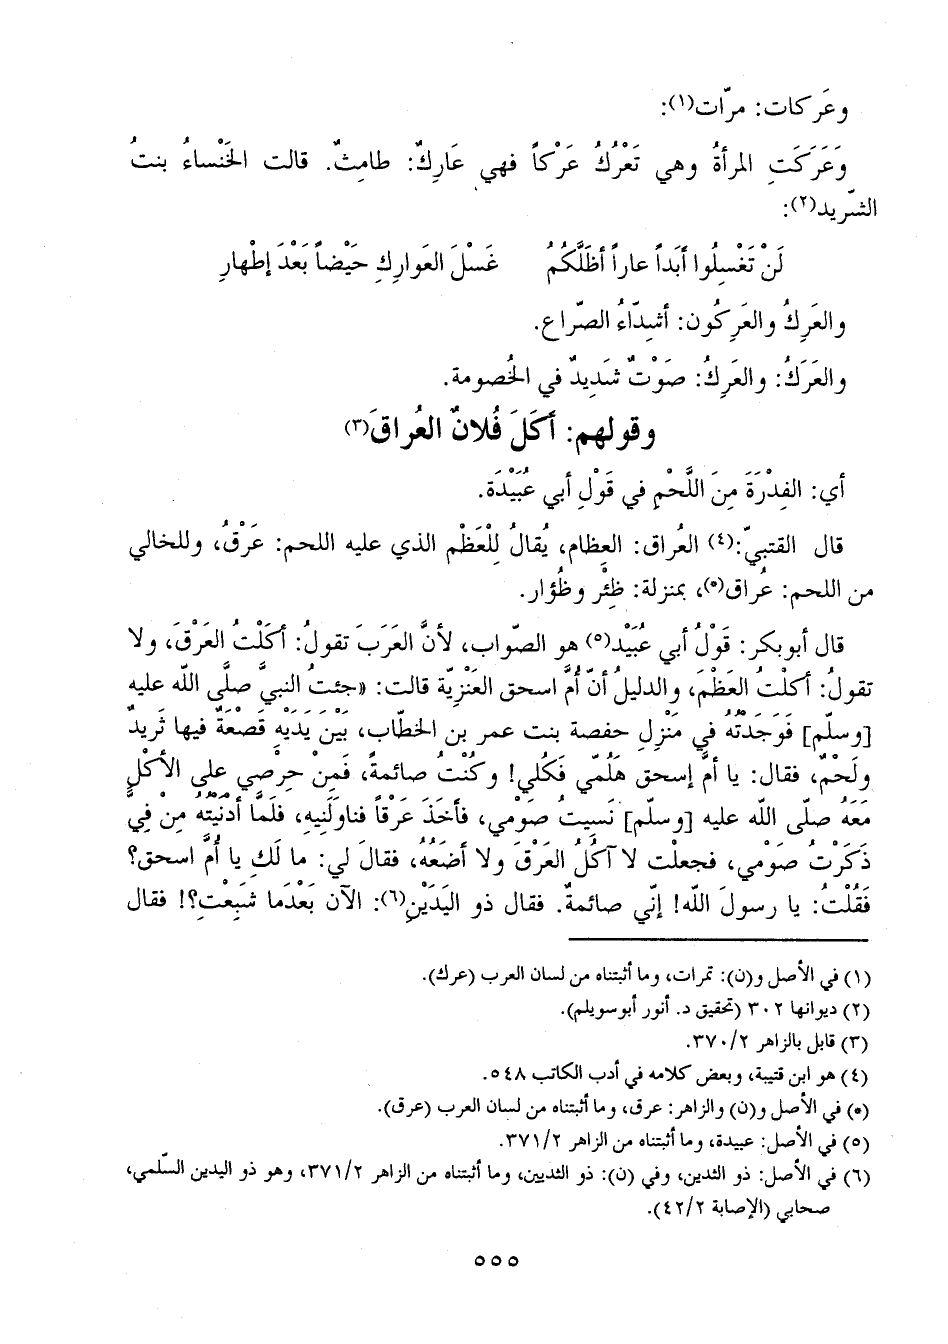 وعَركات: مرّات(١):
وَعَرَكَتِ المرأةُ وهي تَعْرُكُ عَرْكاً فهي عَارِكٌ: طامِثٌ. قالت الخَنْساءُ بنتُ
الشّريد(٢):
لَنْ تَغْسِلُوا أبَداً عاراً أظَلَّكُمُ غَسْلَ العَوارِكِ حَيْضاً بَعْدَ إطْهارِ
والعَرِكُ والعَرِكُون: أشِدّاءُ الصّراع.
والعَرَكُ: والعَرِكُ: صَوْتٌ شَدِيدٌ في الخُصومة.
وقولهم: أكَلَ فُلانٌ العُراقَ(٣)
أي: الفِدْرَةَ مِنَ اللَّحْمِ في قَوْلِ أبي عُبَيْدَة.
قال القتبيّ:(٤) العُراق: العِظام، يُقالُ لِلْعَظْم الذي عليه اللحم: عَرْقُ، وللخالي
من اللحم: عُراق(*)، بمنزلة: ظِئْر وظُؤار.
قال أبوبكر: قَوْلُ أبي عُبَيْد(٥) هو الصّواب، لأنَّ العَرَبَ تقولُ: أكَلْتُ العَرْقَ، ولا
تقولُ: أكلْتُ العَظْمَ، والدليلُ أنّ أمَّ اسحق العَنْزِيّة قالت: «جئتُ النبيَّ صلَّى اللّه عليه
[وسلّم] فَوَجَدْتُهُ في مَنْزِلِ حفصة بنت عمر بن الخطّاب، بَيْنَ يَدَيْهِ قَصْعَةٌ فيها ثَرِيدٌ
ولَحْمٌ، فقال: يا أمَّ إسحق هَلُمّي فَكُلي! وكُنْتُ صائمةً، فَمِنْ حِرْصي على الأكْلِ
مَعَهُ صلّى اللّه عليه [وسلّم] نَسِيتُ صَوْمي، فأخَذَ عَرْقاً فناوَلَنِيهِ، فلَمَّا أدْنَيْتُهُ مِن فِيَّ
ذَكَرْتُ صَوْمي، فجعلْت لا آكُلُ العَرْقَ ولا أضَعُهُ، فقالَ لي: ما لَكِ يا أُمَّ اسحق؟
فَقُلْتُ: يا رسولَ اللّه! إنّي صائمةٌ. فقال ذو اليَدَيْنِ(٦): الآن بَعْدَما شَبِعْتِ؟! فقال
(١) في الأصل و(ن): تمرات، وما أثبتناه من لسان العرب (عرك).
(٢) ديوانها ٣٠٢ (تحقيق د. أنور أبوسويلم).
(٣) قابل بالزاهر ٣٧٠/٢.
(٤) هو ابن قتيبة، وبعض كلامه في أدب الكاتب ٥٤٨.
(*) في الأصل و(ن) والزاهر: عرق، وما أثبتناه من لسان العرب (عرق).
(٥) في الأصل: عبيدة، وما أثبتناه من الزاهر ٣٧١/٢.
(٦) في الأصل: ذو الثدين، وفي (ن): ذو الثديين، وما أثبتناه من الزاهر ٣٧١/٢، وهو ذو اليدين السّلمي،
صحابي (الإصابة ٤٢/٢).
٥٥٥